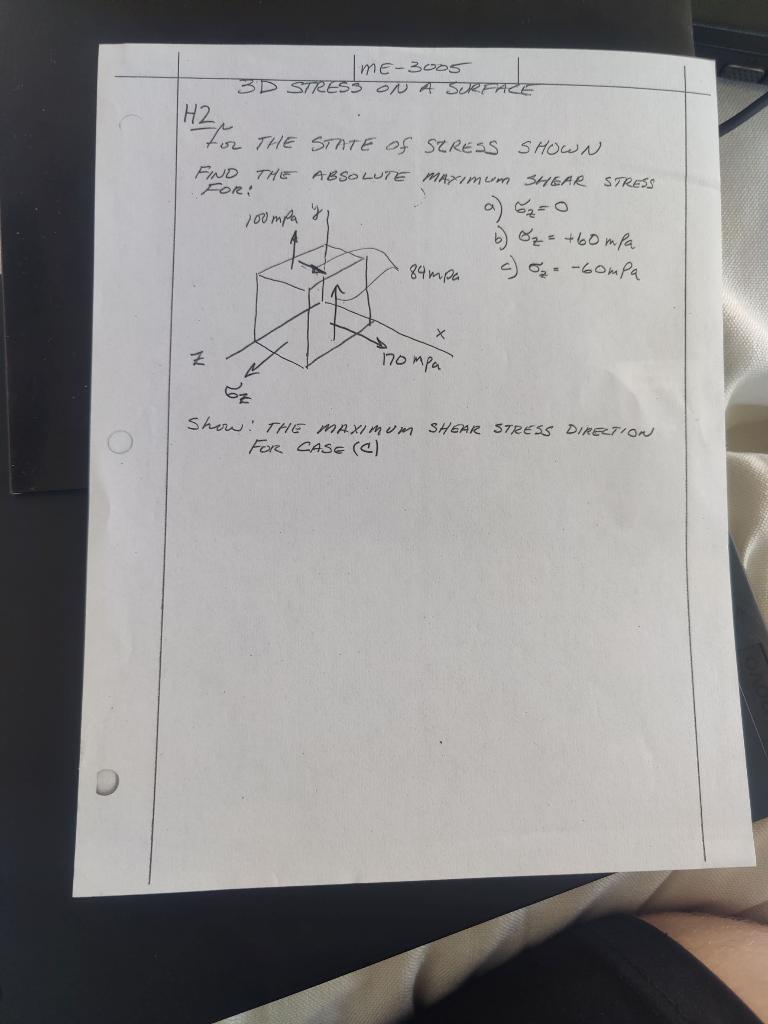 ME-3005
3D STRESS ON A SURFACE
H2
For THE STATE Of STRESS SHOWN
FIND THE ABSOLUTE MAXIMUM SHEAR STRESS
FOR:
a) σz = 0
b) σz = +60 mPa
c) σz = -60 mPa
100 mPa
y
84 mPa
x
z
170 mPa
σz
Show: THE MAXIMUM SHEAR STRESS DIRECTION
FOR CASE (C)